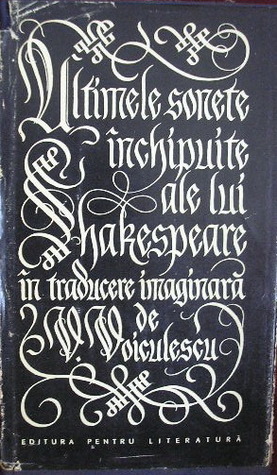 Ultimele sonete
închipuite
ale lui
Shakespeare
în traducere imaginară
de
V. Voiculescu
EDITURA PENTRU LITERATURĂ